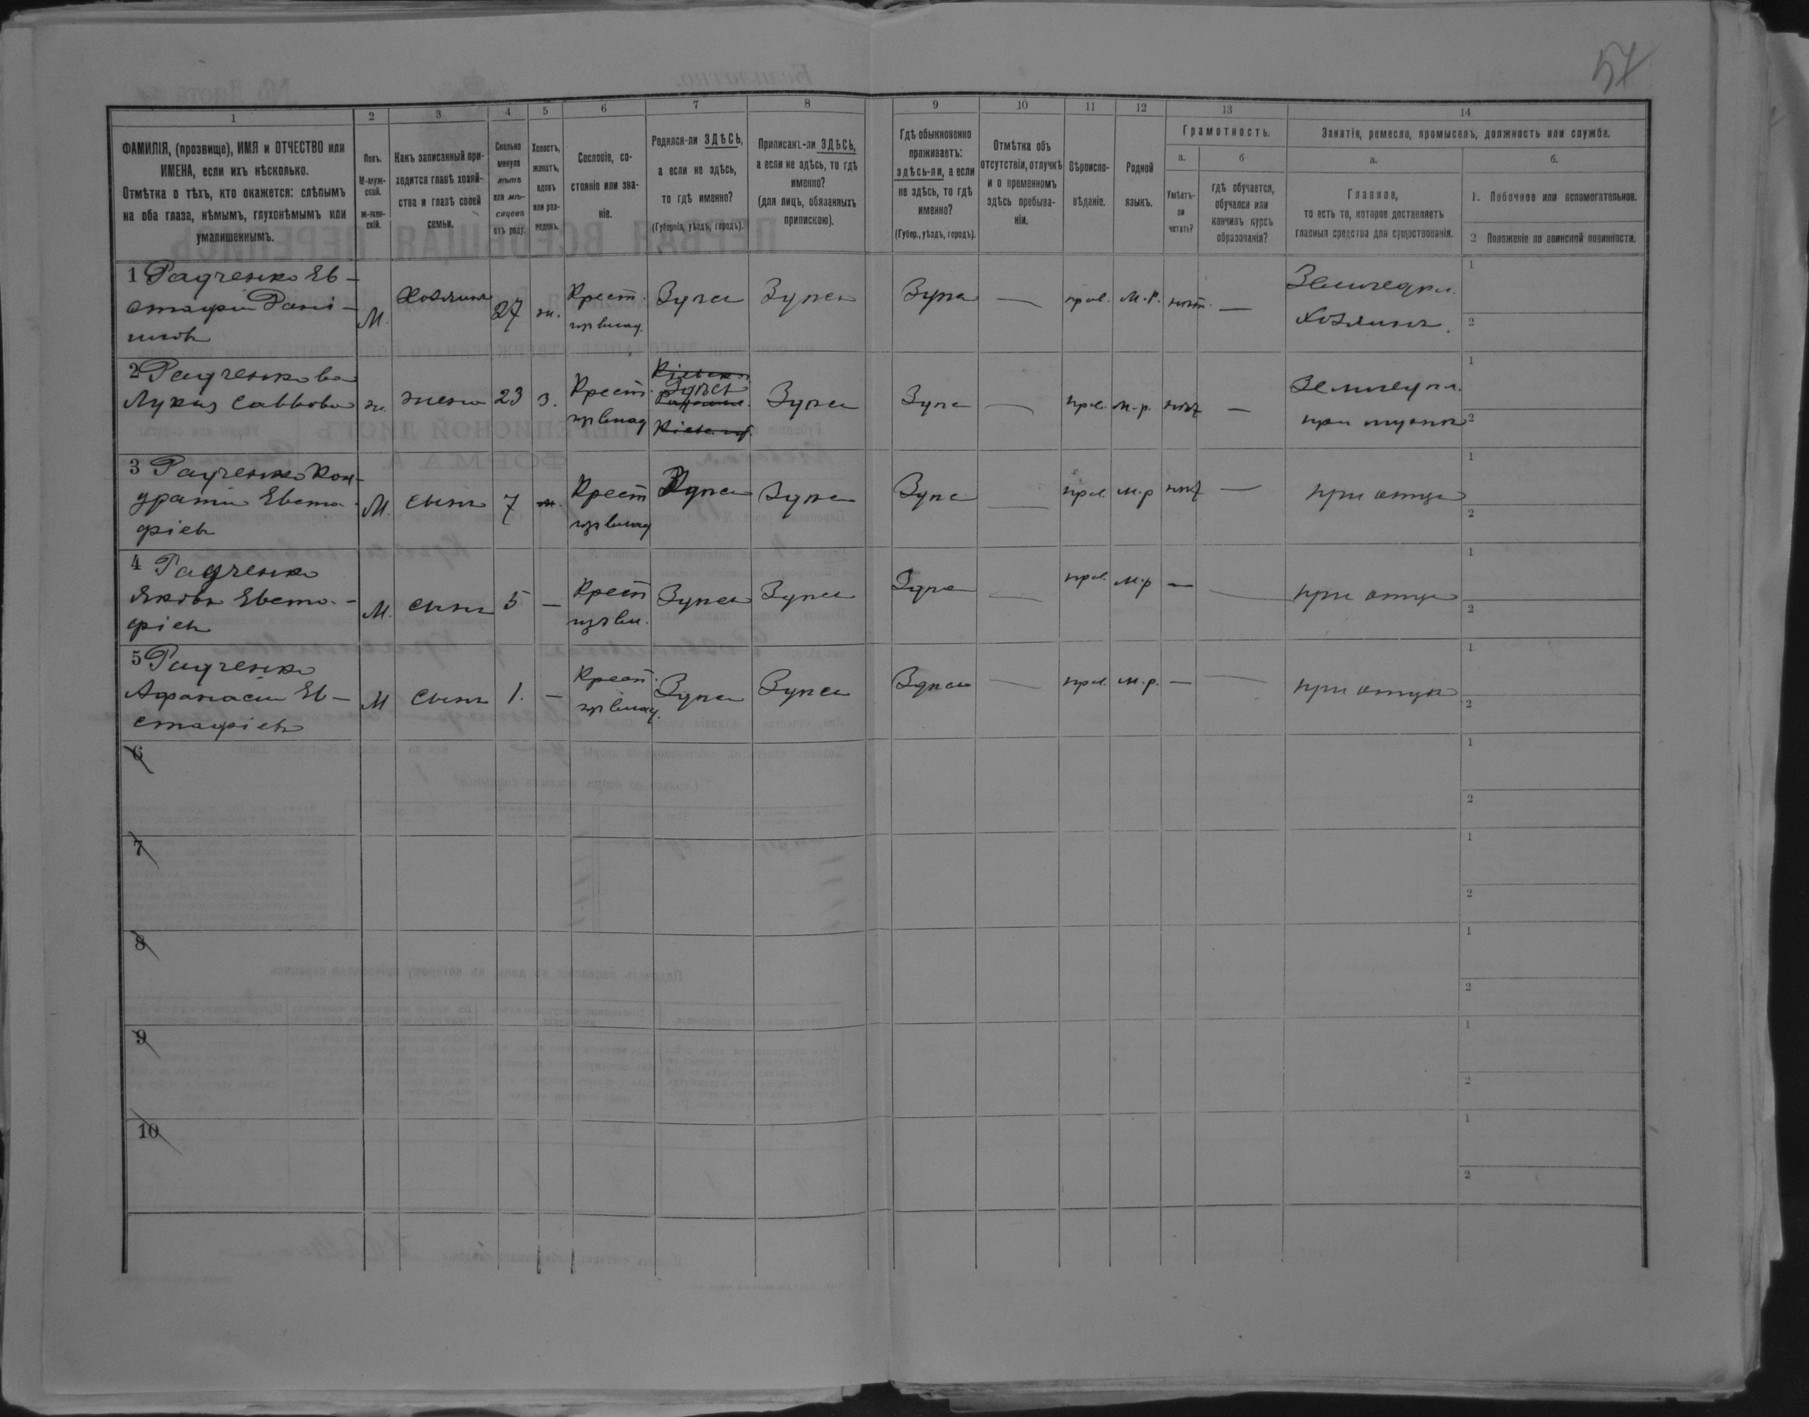 57
1
2
3
4
5
6
7
8
9
10
11
12
13
14
ФАМИЛІЯ, (прозвище), ИМЯ и ОТЧЕСТВО или
ИМЕНА, если ихъ нѣсколько.
Отмѣтка о тѣхъ, кто окажется: слѣпымъ
на оба глаза, нѣмымъ, глухонѣмымъ или
умалишеннымъ.
Полъ.
М-муж-
ской.
ж-жен-
скій.
Какъ записанный при-
ходится главѣ хозяй-
ства и главѣ своей
семьи.
Сколько
минуло
лѣтъ
или мѣ-
сяцевъ
отъ роду.
Холостъ,
женатъ,
вдовъ
или раз-
веденъ.
Сословіе, со-
стояніе или зва-
ніе.
Родился-ли ЗДѢСЬ,
а если не здѣсь,
то гдѣ именно?
(Губернія, уѣздъ, городъ).
Приписанъ-ли ЗДѢСЬ,
а если не здѣсь, то гдѣ
именно?
(для лицъ, обязанныхъ
припискою).
Гдѣ обыкновенно
проживаетъ:
здѣсь-ли, а если
не здѣсь, то гдѣ
именно?
(Губер., уѣздъ, городъ).
Отмѣтка объ
отсутствіи, отлучкѣ
и о временномъ
здѣсь пребыва-
ніи.
Вѣроиспо-
вѣданіе.
Родной
языкъ.
Грамотность.
а.
Умѣетъ-
ли
читать?
б
гдѣ обучается,
обучался или
кончилъ курсъ
образованія?
Занятіе, ремесло, промыселъ, должность или служба.
а.
Главное,
то есть то, которое доставляетъ
главныя средства для существованія.
б.
1. Побочное или вспомогательное.
2 Положеніе по воинской повинности.
1 Радченко Ев-
стафій Дани-
ловъ
М.
Хозяинъ
27
ж.
Крест.
Здѣсь
Здѣсь
Здѣсь
—
прав.
м.-р.
нѣтъ
—
Земледѣл.
хозяинъ.
1
2
2 Радченкова
Лукія Саввова
ж.
жена
23
з.
Крест.
Здѣсь
Здѣсь
Здѣсь
—
прав.
м.р.
нѣт
—
Земледѣл.
при мужѣ
1
2
3 Радченко Кон-
дратій Евста-
фіевъ
М.
сынъ
7
Крест
Здѣсь
Здѣсь
Здѣсь
—
прав.
м.р
нѣт
—
при отцѣ
1
2
4 Радченко
Яковъ Евста-
фіевъ
М.
сынъ
5
—
Крест
Здѣсь
Здѣсь
Здѣсь
—
прав.
м.р
—
—
при отцѣ
1
2
5 Радченко
Афанасій Ев-
стафіевъ
М
сынъ
1.
—
Крест.
Здѣсь
Здѣсь
Здѣсь
—
прав.
м.р.
—
—
при отцѣ
1
2
6
1
2
7
1
2
8
1
2
9
1
2
10
1
2